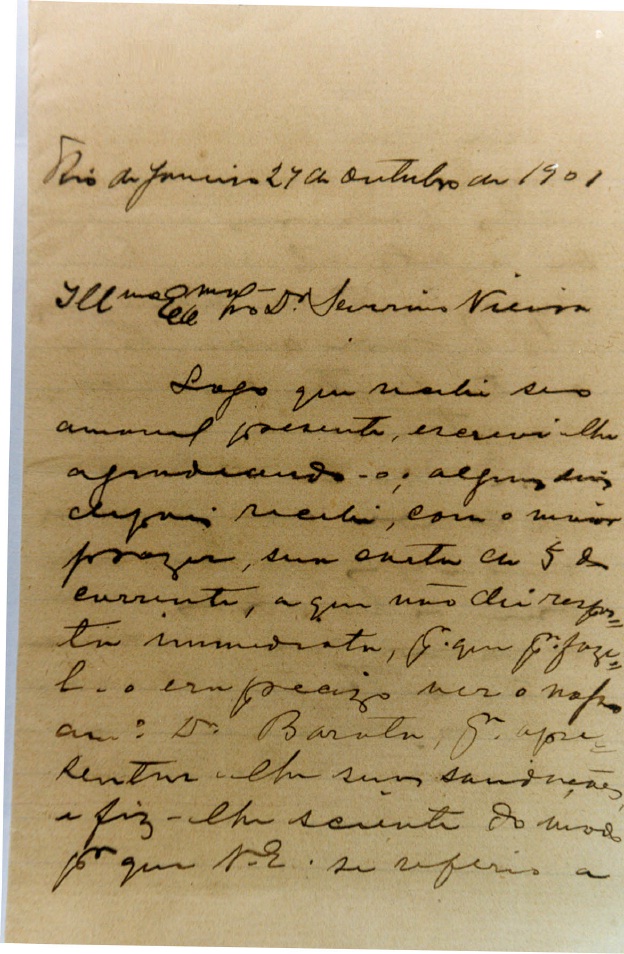 Rio de Janeiro 27 de Outubro de 1901
Illmo Exmo Sro Dr. Severino Vieira
Logo que recebi seo
amavel presente, escrevi-lhe
agradecendo-o; alguns dias
depois recebi, com o maior
prazer, sua carta de 5 do
corrente, a que não dei respos=
ta immediata, p.que pa. faze=
l-o era precizo ver o nosso
amo. Dr. Barata, pa. apre=
sentar-lhe suas saudações,
e fiz-lhe sciente do modo
pr que V.E. se referio a